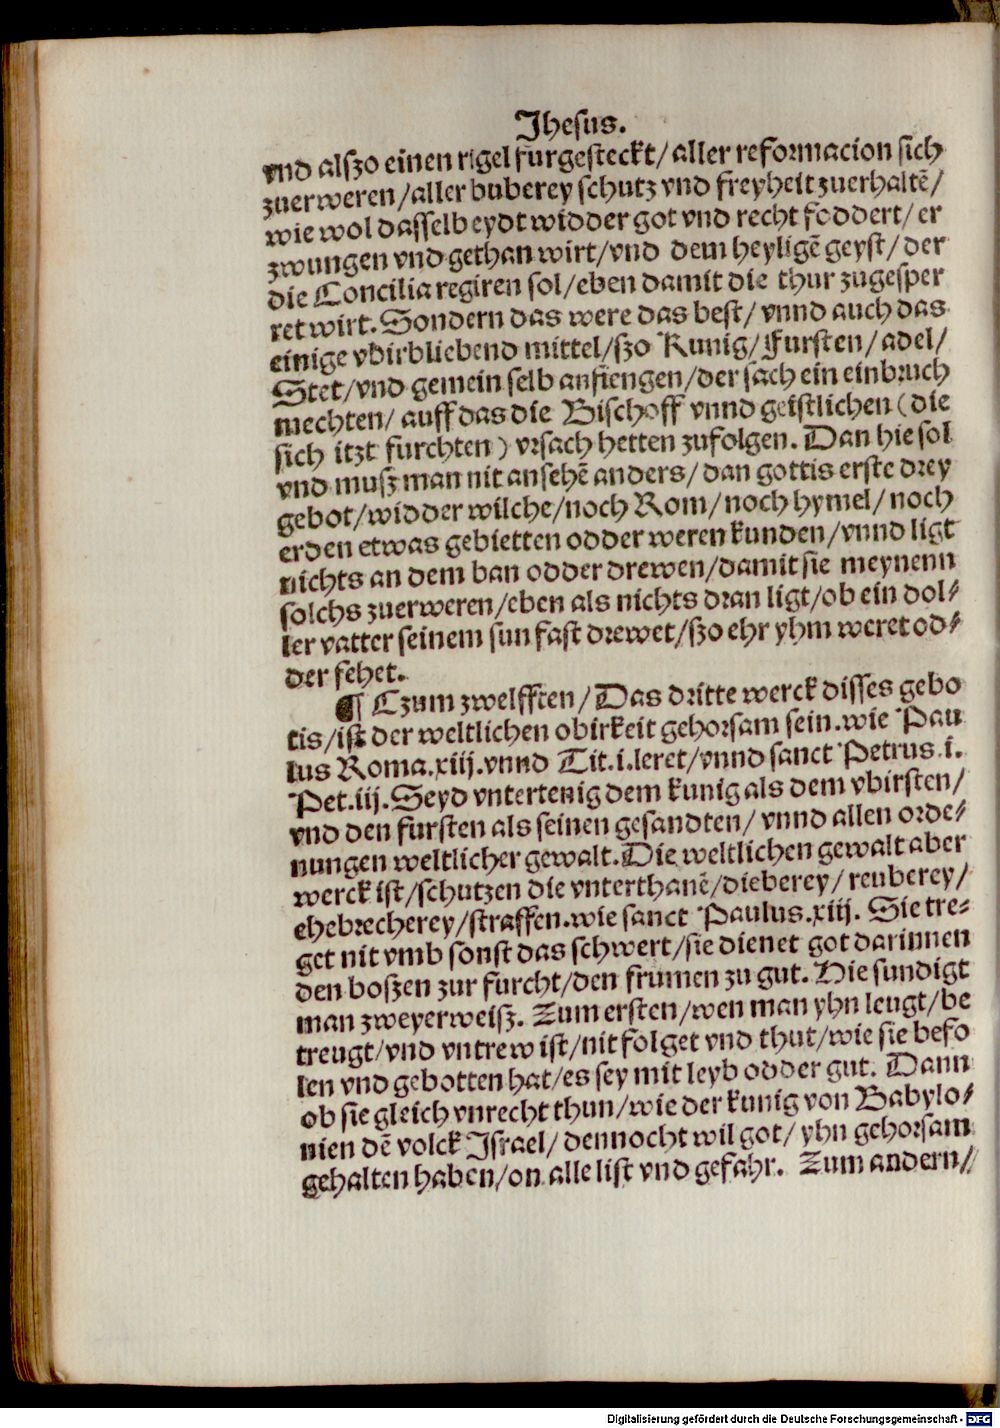 Jhesus.
vnd alſzo einen rigel furgeſteckt/ aller reformacion ſich
zuerweren/aller buberey ſchutz vnd freyheit zuerhaltē/
wie wol daſſelb eydt widder got vnd recht foddert/ er
zwungen vnd gethan wirt/vnd dem heyligē geyſt/ der
die Concilia regiren ſol/eben damit die thur zugeſper
ret wirt. Sondern das were das beſt/ vnnd auch das
einige vbirbliebend mittel/ſzo Kunig/ Furſten/ adel/
Stet/vnd gemein ſelb anfiengen/der ſach ein einbruch
mechten/ auff das die Biſchoff vnnd geiſtlichen (die
ſich itzt furchten) vrſach hetten zufolgen. Dan hie ſol
vnd muſz man nit anſehē anders/ dan gottis erſte drey
gebot/widder wilche/noch Rom/noch hymel/ noch
erden etwas gebietten odder weren kunden/vnnd ligt
nichts an dem ban odder drewen/damit ſie meynenn
ſolchs zuerweren/eben als nichts dran ligt/ob ein dol-
ler vatter ſeinem ſun faſt drewet/ſzo ehr yhm weret od-
der fehet.
¶ Czum zwelfften/ Das dritte werck diſſes gebo
tis/iſt der weltlichen obirkeit gehorſam ſein.wie Pau
lus Roma.xiij.vnnd Tit.i.leret/vnnd ſanct Petrus.i.
Pet.iij.Seyd vntertenig dem kunig als dem vbirſten/
vnd den furſten als ſeinen geſandten/ vnnd allen orde-
nungen weltlicher gewalt.Die weltlichen gewalt aber
werck iſt/ſchutzen die vnterthanē/dieberey/ reuberey/
ehebrecherey/ſtraffen.wie ſanct Paulus.xiij. Sie tre-
get nit vmb ſonſt das ſchwert/ſie dienet got darinnen
den boſzen zur furcht/den frumen zu gut. Hie ſundigt
man zweyerweiſz. Zum erſten/wen man yhn leugt/be
treugt/vnd vntrew iſt/nit folget vnd thut/wie ſie befo
len vnd gebotten hat/es ſey mit leyb odder gut. Dann
ob ſie gleich vnrecht thun/wie der kunig von Babylo-
nien dē volck Iſrael/ dennocht wil got/ yhn gehorſam
gehalten haben/on alle liſt vnd gefahr. Zum andern/
Digitalisierung gefördert durch die Deutsche Forschungsgemeinschaft - DFG